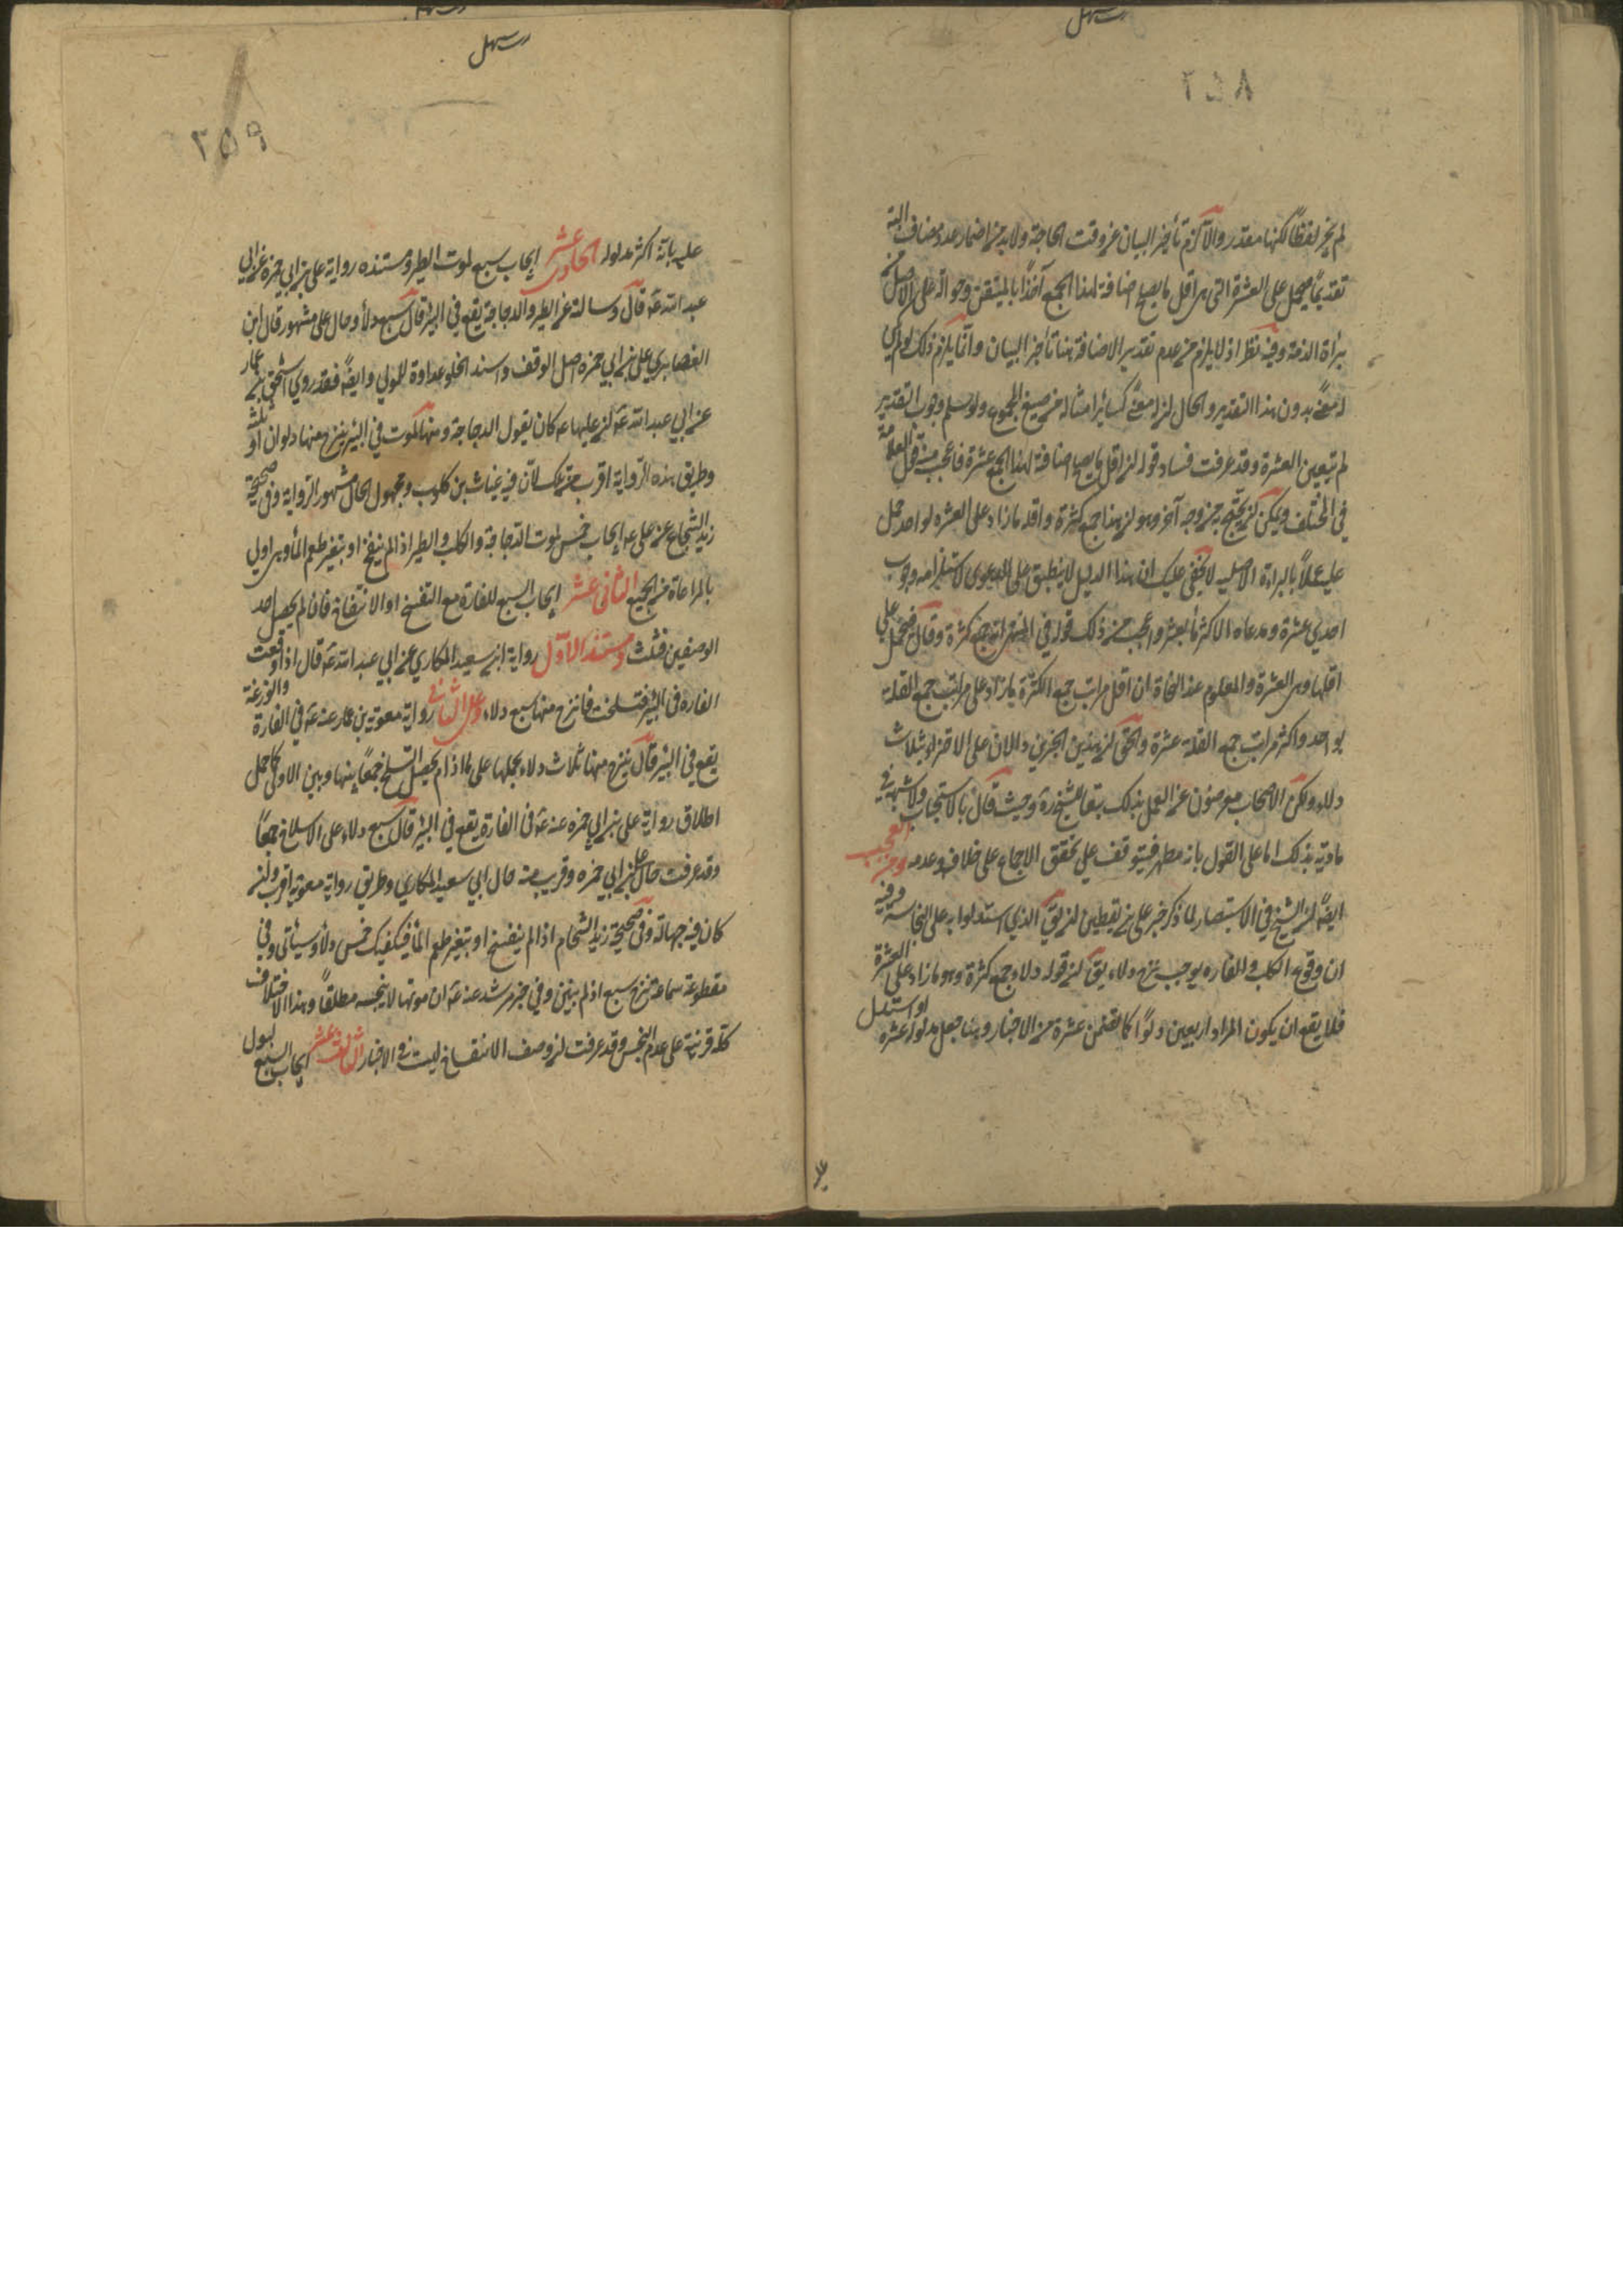 ٢٥٨
لم يجر لفظاً لكنها مقدر والا لزم تأخير البيان عن وقت الحاجة ولا بد من اضمار عدد مضاف اليه
تقديماً فيحمل على العشرة التي هي اقل ما يصح اضافة لهذا الجمع آخذاً بالمتيقن وحوالة على الاصل من
براءة الذمة وفيه نظر اذ لا يلزم من عدم تقدير الاضافة هنا تأخير البيان وانما يلزم ذلك لو لم يكن
له معنى بدون هذا التقدير والحال ان له معنى كسائر امثاله من صيغ الجموع ولو سلم وجوب التقدير
لم يتعين العشرة وقد عرفت فساد قوله ان اقل ما يصح اضافة لهذا الجمع عشرة فاعجب منه قول العلامة
في المختلف ويمكن ان يحتج به من وجه آخر وهو ان هذا جمع كثرة واقله ما زاد على العشرة لواحد فحمل
عليه عملاً بالبراءة الاصلية لا يخفى عليك ان هذا الدليل لا ينطبق على الدعوى لاستلزامه وجوب
احدى عشرة ومدعاه الاكتفاء بالعشر واعجب من ذلك قوله في المنتهى انه جمع كثرة وقال فيحمل على
اقلها وهي العشرة والمعلوم عند النحاة ان اقل مراتب جمع الكثرة ما زاد على مراتب جمع القلة
بواحد واكثر مراتب جمع القلة عشرة والحق ان هذين الخبرين دالان على الاجتزاء بثلاث
دلاء ولكن الاصحاب معرضون عن العمل بذلك بقا الشيخ ره وحيث قال بالاستحباب ولا شبهة في
مادية بذلك اما على القول بانه مطهر فيتوقف على تحقق الاجماع على خلافه وعدمه ومن العجيب
ايضاً ان الشيخ في الاستبصار لما ذكر خبر علي بن يقطين ان يق الذي استدلوا به على النجاسة وفيه
ان وقوع الكلب والفاره يوجب نزح دلاء يق ان قوله دلاء جمع كثرة وهو ما زاد على العشرة
فلا يقع ان يكون المراد اربعين دلوًا كما تضمن عشرة من الاخبار وهنا جعل مدلوله عشرة لو استدل
٢٥٩
عليه بانه اكثر مدلوله الحادي عشر ايجاب سبع لموت الطير ومستنده رواية علي بن ابي حمزه عن ابي
عبد الله ع قال وسالته عن الطير والدجاجة يقع في البئر قال سبع دلاء وحال علي مشهور قال ابن
الغضايري علي بن ابي حمزه اصل الوقف واشد الخلق عداوة للمولى وايضاً فقد روى اسحق بن عمار
عن ابي عبد الله ع ان عليا ع كان يقول الدجاجة ومثلها تموت في البئر ينزح منها دلوان او ثلثة
وطريق هذه الرواية اقرب من تلك لان فيه غياث بن كلوب ومجهول الحال مشهور الرواية وفي صحيحة
زيد الشحام عن علي ع ايجاب خمس لموت الدجاجة والكلب والطير اذا لم ينفخ او يتغير طعم الماء وهي اولى
بالمراعاة من الجميع الثاني عشر ايجاب السبع للفارة مع التفسخ او الانتفاخ فان لم يحصل احد
الوصفين فثلث ومستند الاول رواية ابي سعيد المكاري عن ابي عبد الله ع قال اذا وقعت
الفاره في البئر فتسلخت فانزح منها سبع دلاء وعلى الثاني رواية معوية بن عمار عنه ع في الفارة والوزغة
يقع في البئر قال ينزح منها ثلاث دلاء بحملها على ما اذا لم يحصل التسلخ جمعاً بينها وبين الاولى كما حمل
اطلاق رواية علي بن ابي حمزه عنه ع في الفارة يقع في البئر قال سبع دلاء على الانسلاخ جمعاً
وقد عرفت حال علي بن ابي حمزه وقريب منه حال ابي سعيد المكاري وطريق رواية معوية اقرب وان
كان فيه جهالة وفي صحيحة زيد الشحام اذا لم ينفسخ او يتغير طعم الماء فيكفيك خمس دلاء وسيأتي وفي
مقطوعة سماعة نزح سبع اذا لم ينتن وفي خبر مرشد عنه ع ان موتها لا ينجسه مطلقاً وهذا الاختلاف
كله قرينة على عدم النجس وقد عرفت ان وصف الانتفاخ ليست في الاخبار الثالث عشر ايجاب السبع لبول